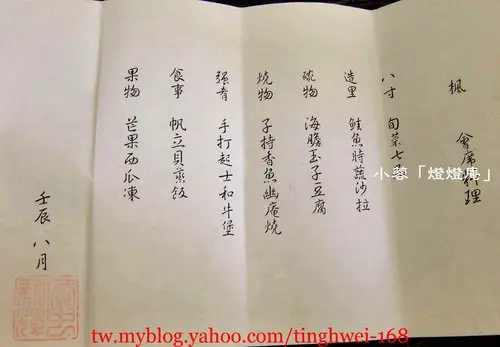 楓　會席料理
八寸　旬菜七
造里　鮭魚時蔬沙拉
碗物　海膽玉子豆腐
燒物　子持香魚幽庵燒
強肴　手打起士和牛堡
食事　帆立貝煎飯
果物　芒果西瓜凍
壬辰　八月
小蓉「燈燈庵」
tw.myblog.yahoo.com/tinghwei-168